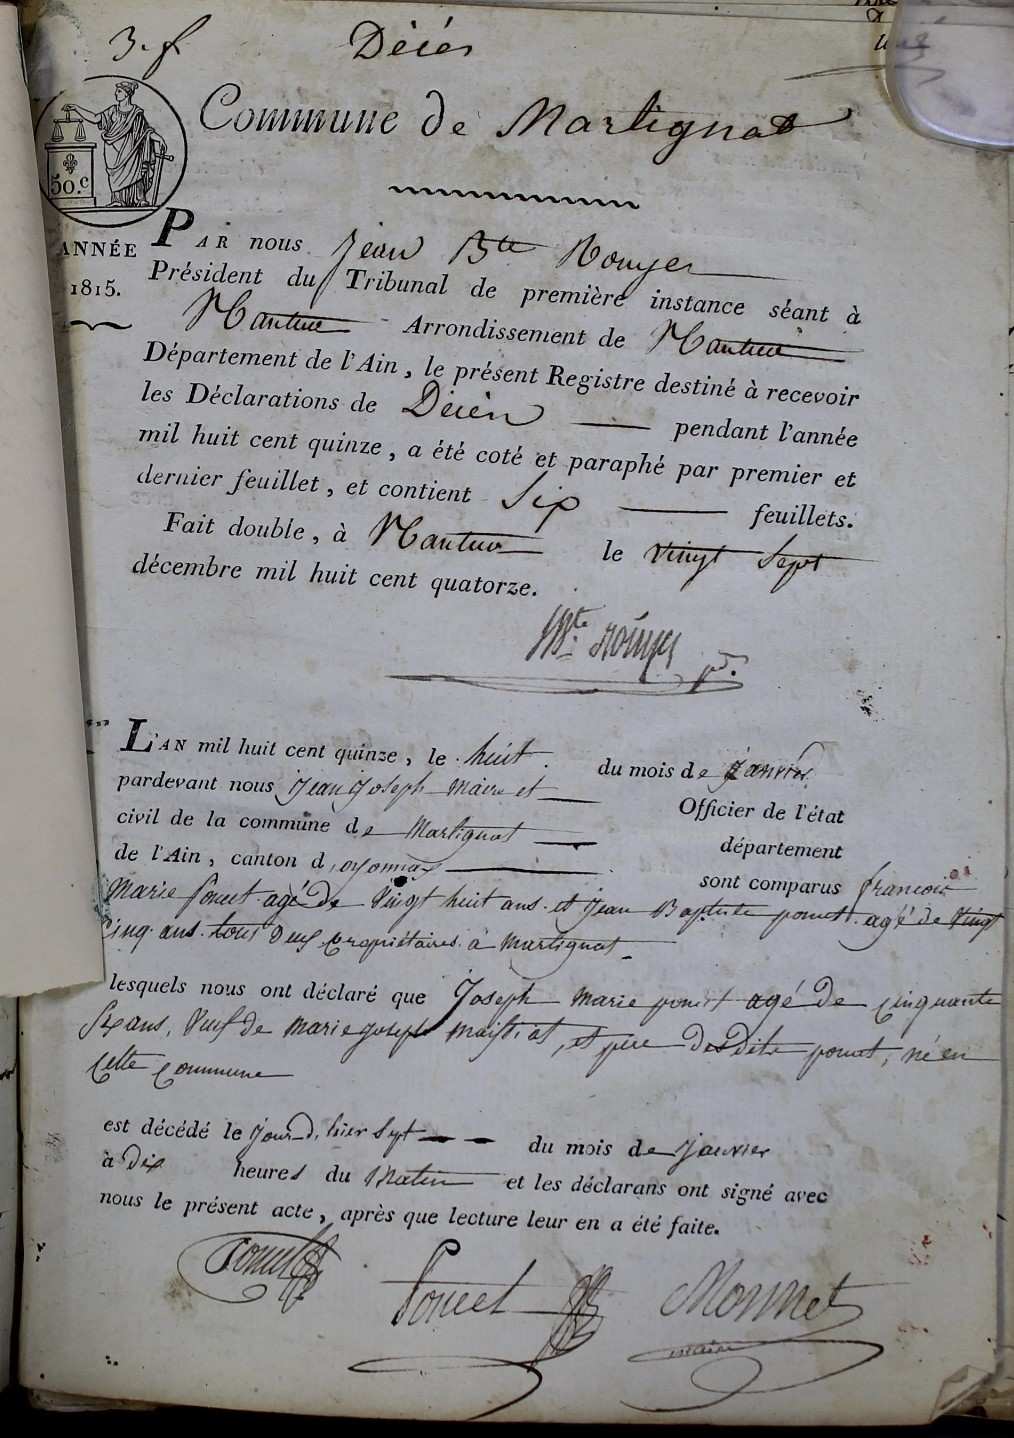 3. f Décés
Commune de Martignat
50.c
ANNÉE
1815.
PAR nous Jean Bte Rouyer
Président du Tribunal de première instance séant à
Nantua Arrondissement de Nantua
Département de l'Ain, le présent Registre destiné à recevoir
les Déclarations de Décès pendant l'année
mil huit cent quinze, a été coté et paraphé par premier et
dernier feuillet, et contient Six feuillets.
Fait double, à Nantua le vingt Sept
décembre mil huit cent quatorze.
JBte Rouyer pt.
L'AN mil huit cent quinze, le huit du mois de janvier
pardevant nous Jean Joseph Maire et Officier de l'état
civil de la commune de Martignat département
de l'Ain, canton d'oyonnax sont comparus francois
Marie Poncet agé de Vingt huit ans et Jean Baptiste poncet agé de Vingt
Cinq ans tous Deux propriétaires à Martignat
lesquels nous ont déclaré que Joseph Marie poncet agé de Cinquante
Six ans, Veuf de Marie Joseph , et père Desdits poncet, né en
Cette Commune
est décédé le jour d'hier Sept du mois de janvier
à Dix heures du Matin et les déclarans ont signé avec
nous le présent acte, après que lecture leur en a été faite.
Poncet Poncet Monnet
maire